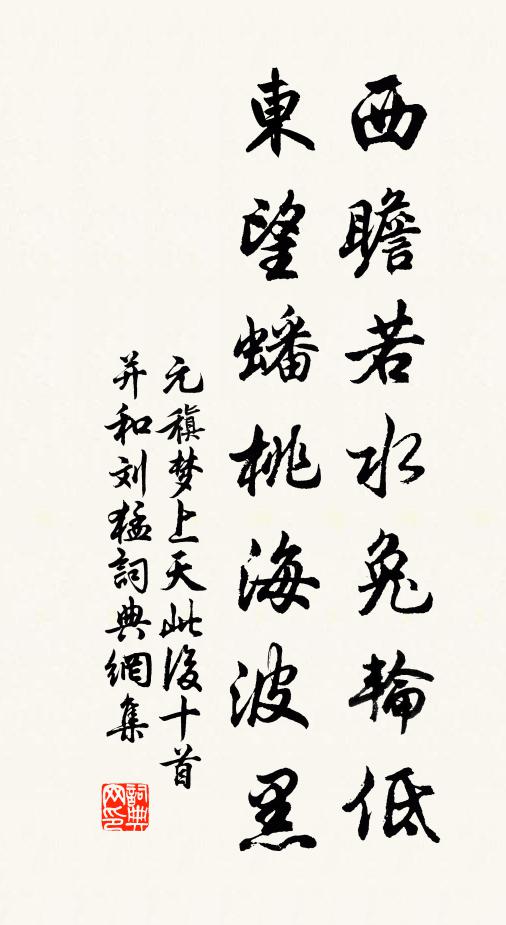 西瞻若水兔輪低
東望蟠桃海波黑
元稹梦上天此後十首
并和刘猛詞典網集
詞典网印